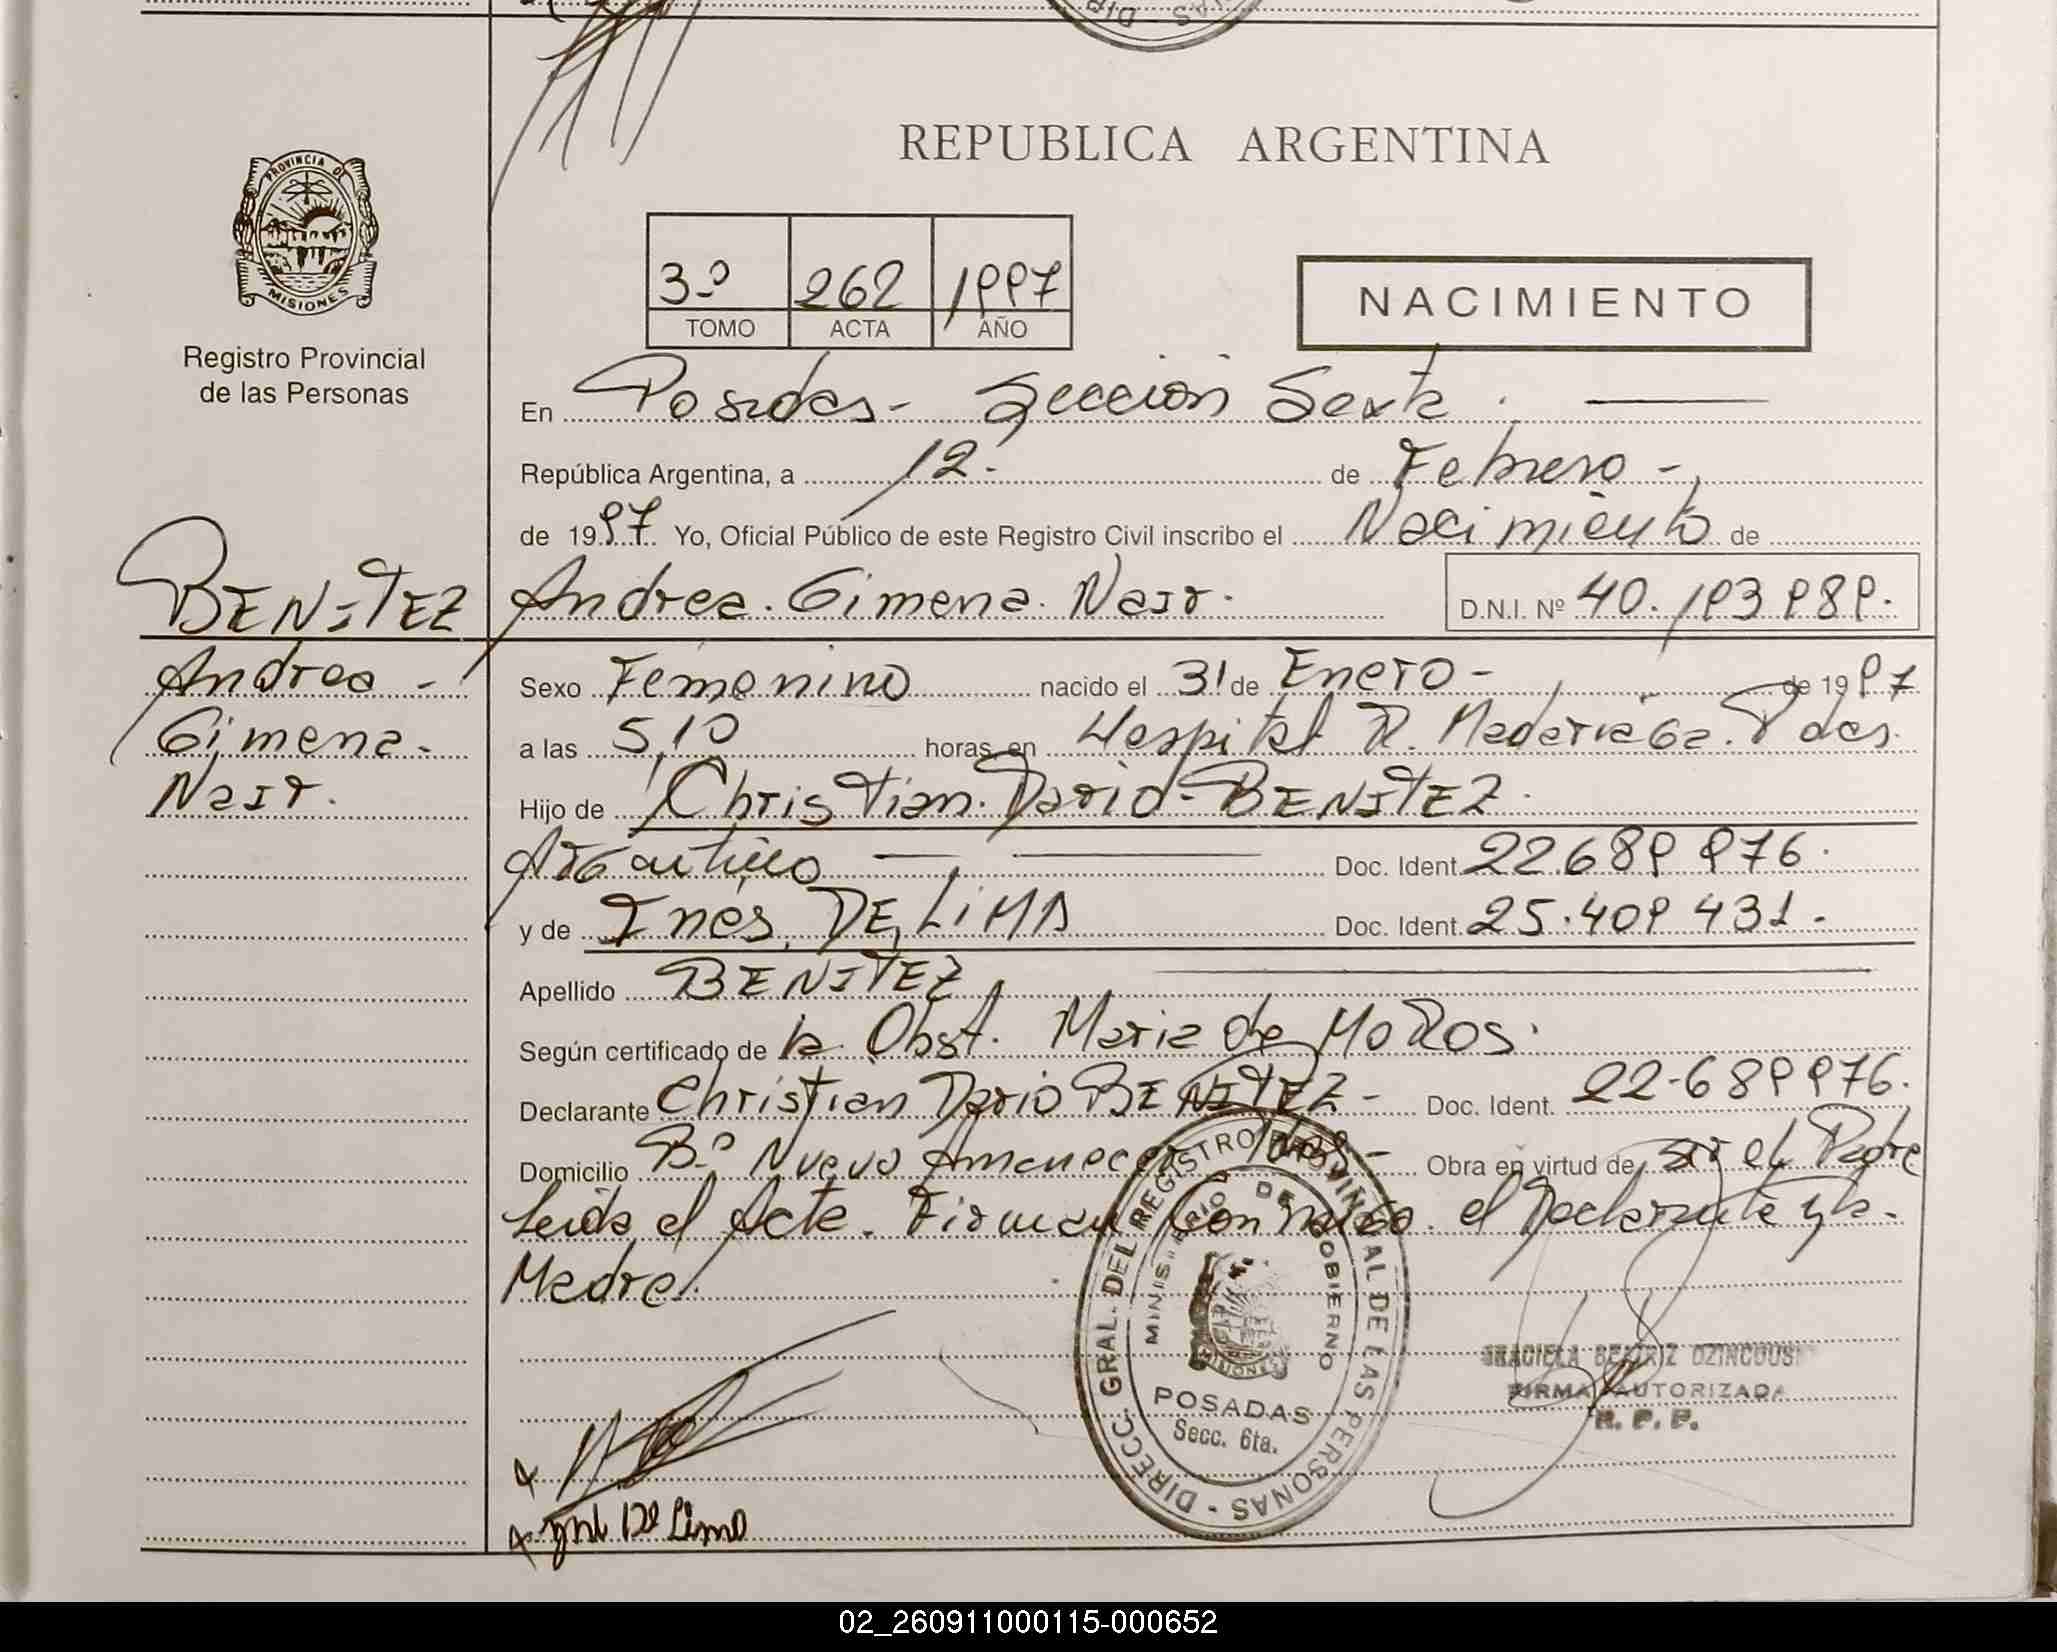 REPUBLICA ARGENTINA
PROVINCIA DE
MISIONES
Registro Provincial
de las Personas
3º 262 1997
TOMO ACTA AÑO
NACIMIENTO
En Posadas - Sección Sexta.
República Argentina, a 12- de Febrero -
de 1997 Yo, Oficial Público de este Registro Civil inscribo el Nacimiento de
BENITEZ Andrea. Gimena. Nair. D.N.I. Nº 40.193989.
Andrea - Sexo Femenino nacido el 31 de Enero - de 1997
Gimena. a las 5,10 horas en Hospital R. Madariaga. Pdas.
Nair. Hijo de Christian. Dario - BENITEZ.
Argentino Doc. Ident. 22.689976.
y de Inés. DE LIMA Doc. Ident. 25.409431.
Apellido BENITEZ
Según certificado de la Obst. Maria de MoRos.
Declarante Christian Dario BENITEZ - Doc. Ident. 22-689976.
Domicilio Bº Nuevo Amanecer Pdas - Obra en virtud de ser el Padre
Leida el Acta. Firman Conmigo. el Declarante y la
Madre.
DIRECC. GRAL. DEL REGISTRO PROVINCIAL DE LAS PERSONAS -
MINISTERIO DE GOBIERNO
MISIONES
POSADAS
Secc. 6ta.
GRACIELA BEATRIZ
FIRMA AUTORIZADA
R. P. P.
De Lima
02_260911000115-000652